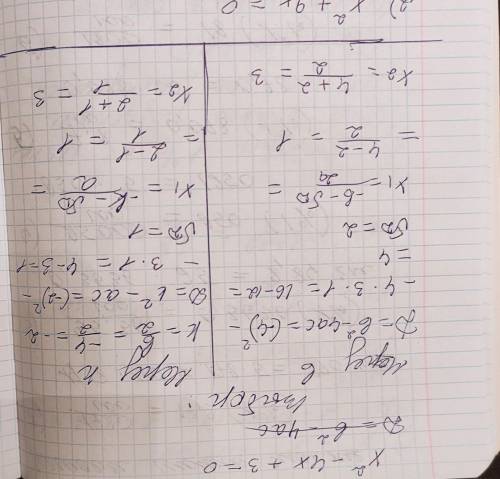 x² - 4x + 3 = 0
D = b² - 4ac
Выбор:
Через b
D = b² - 4ac = (-4)² -
- 4 · 3 · 1 = 16 - 12 =
= 4
√D = 2
x₁ = (-b - √D) / 2a =
= (4 - 2) / 2 = 1
x₂ = (4 + 2) / 2 = 3
Через k
k = b/2 = -4/2 = -2
D = k² - ac = (-2)² -
- 3 · 1 = 4 - 3 = 1
√D = 1
x₁ = (-k - √D) / a =
= (2 - 1) / 1 = 1
x₂ = (2 + 1) / 1 = 3
2) x² + 9x = 0